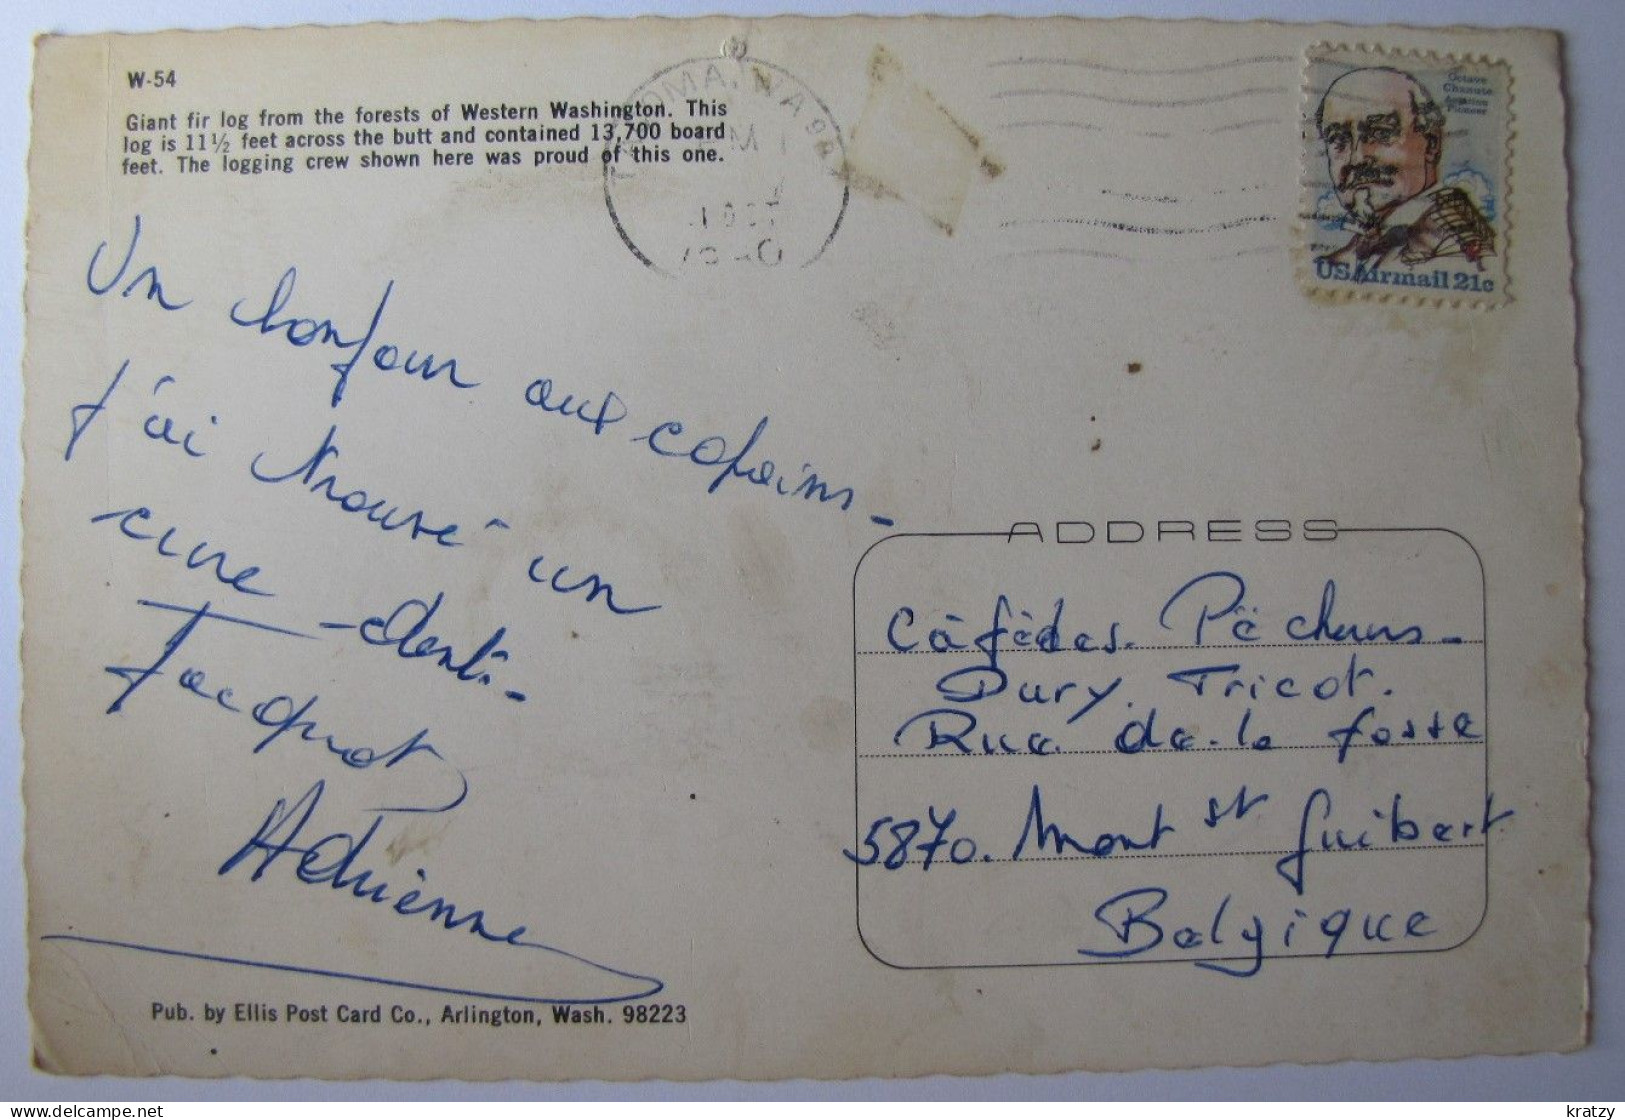 W-54
Giant fir log from the forests of Western Washington. This
log is 11½ feet across the butt and contained 13,700 board
feet. The logging crew shown here was proud of this one.
TACOMA, WA 98
PM
1980
Octave
Chanute
Aviation
Pioneer
USAirmail 21c
Un bonjour aux copains-
J'ai trouvé un
cure-dent.
Jacquot
Adrienne
ADDRESS
Càfèdes. Pêcheurs-
Dury. Tricot.
Rue de la fosse
5870. Mont St Guibert
Belgique
Pub. by Ellis Post Card Co., Arlington, Wash. 98223
kratzy